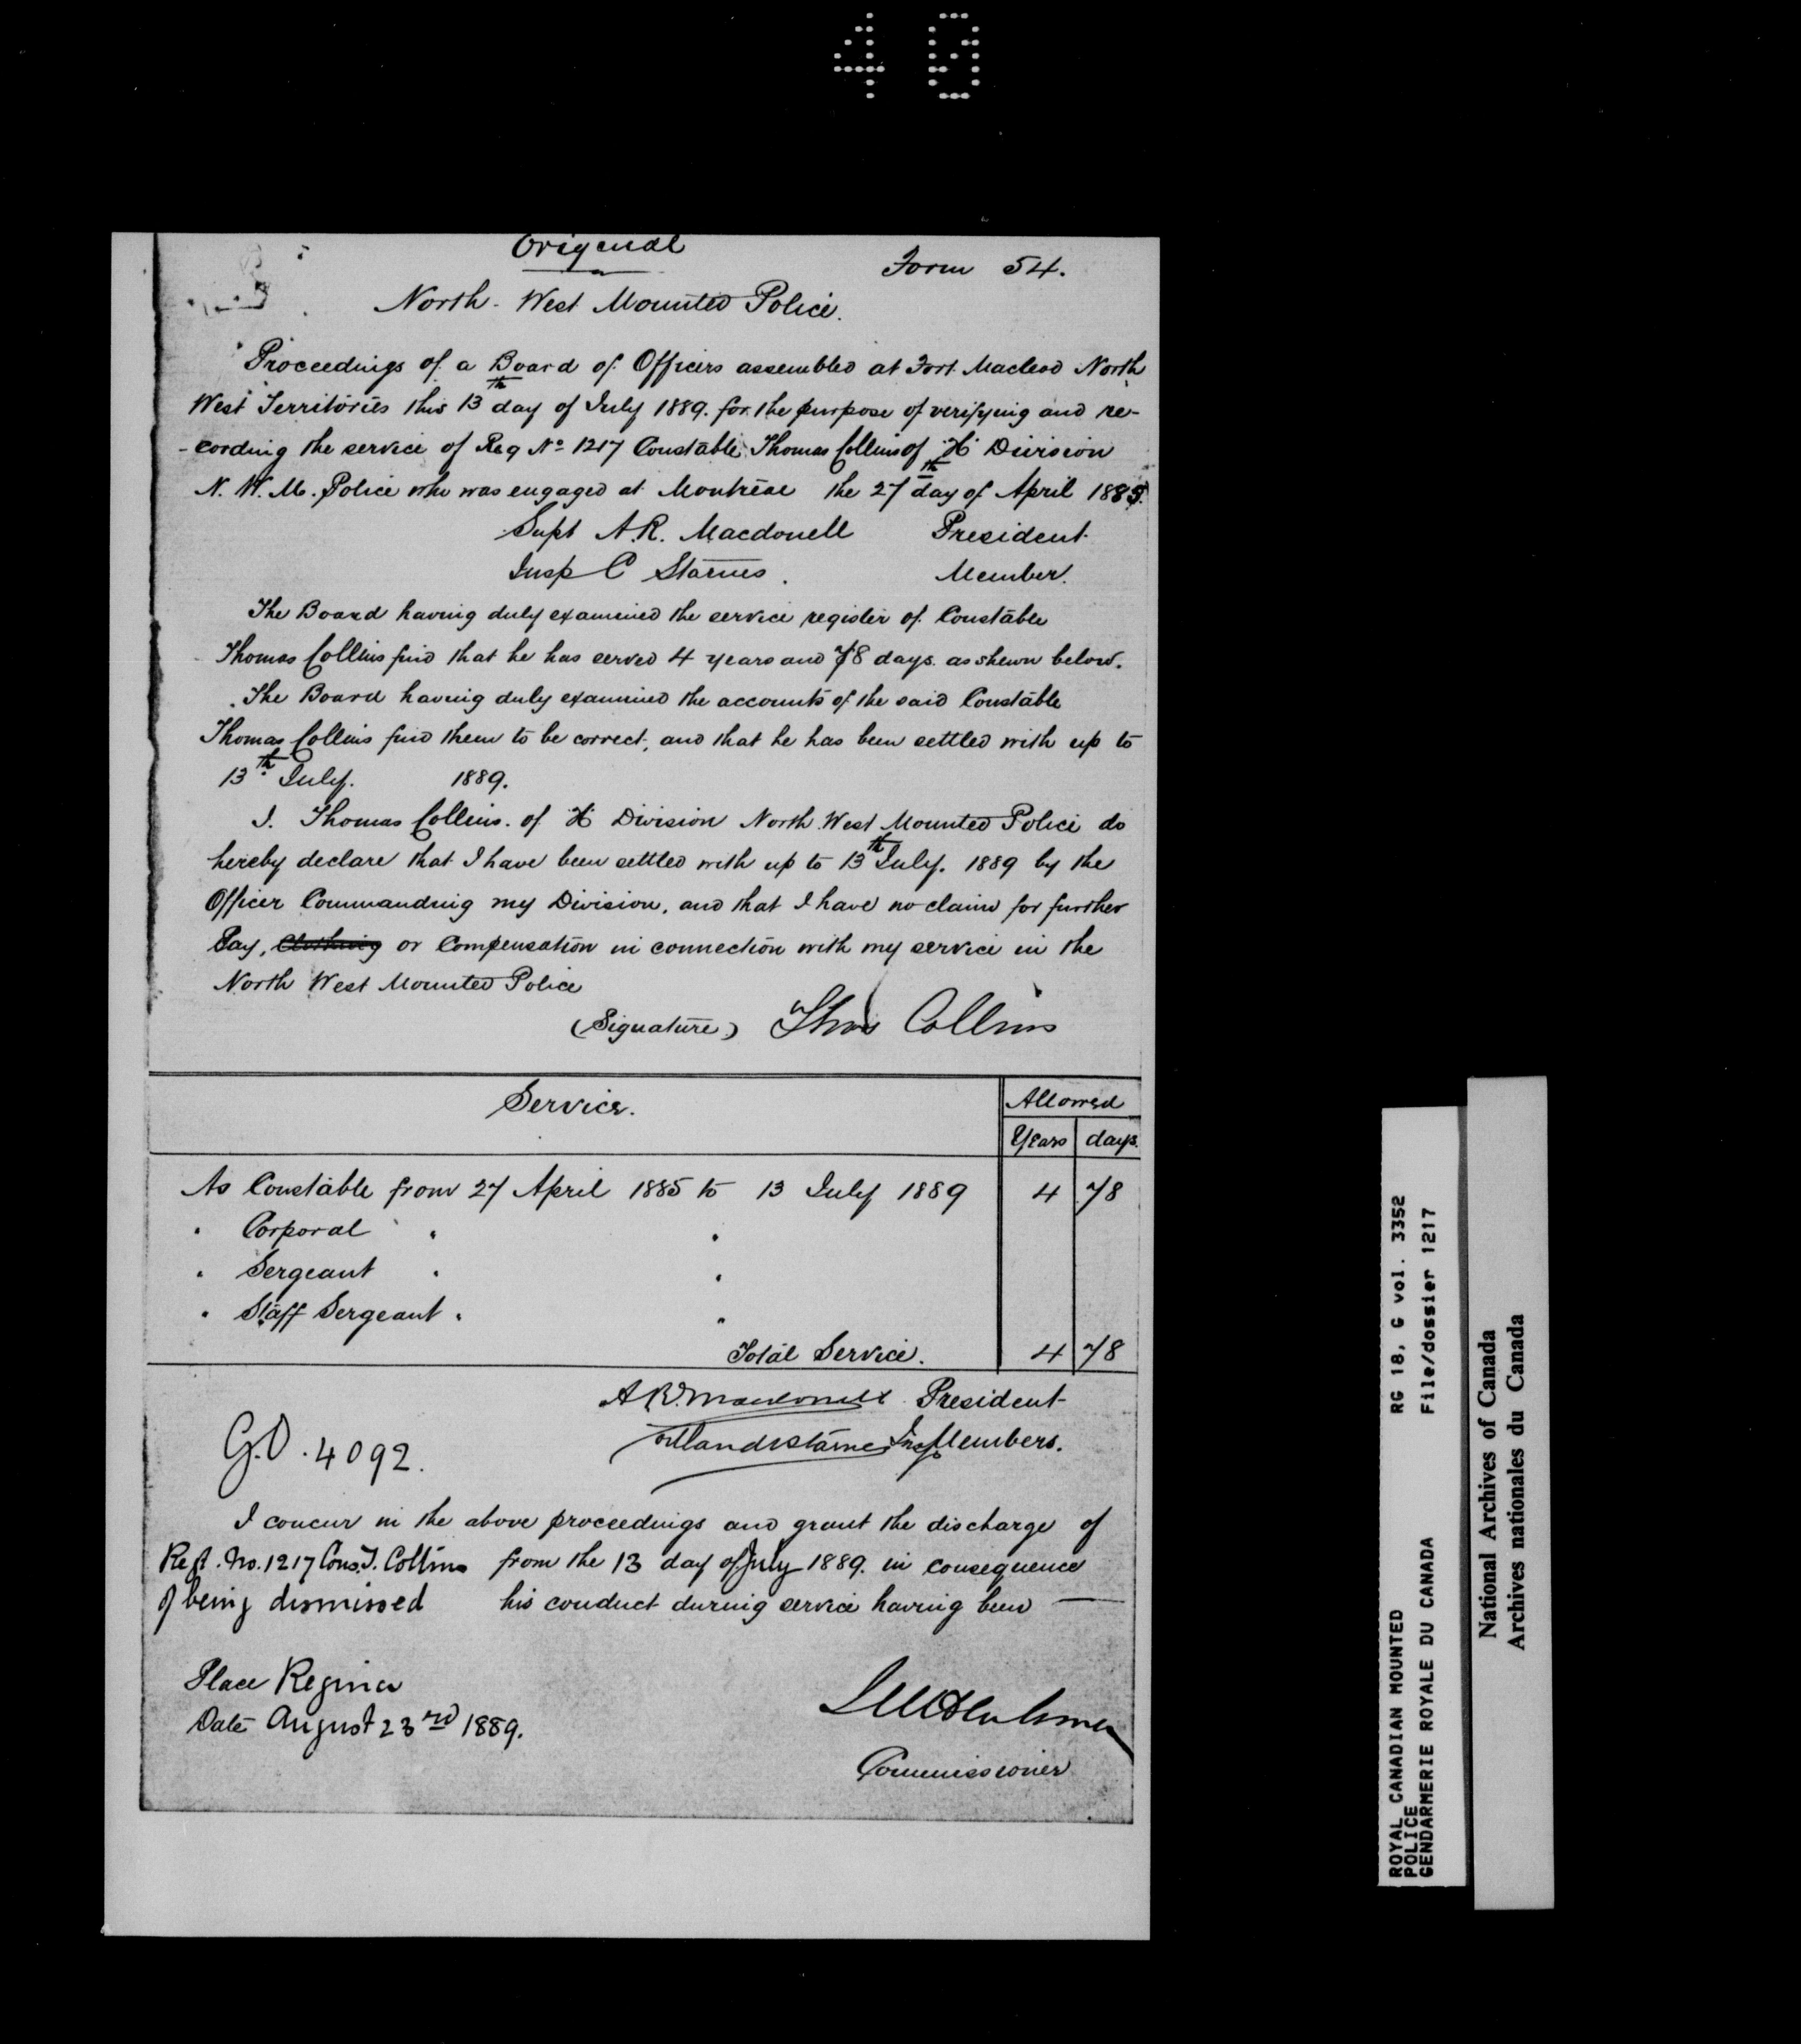 40
Original
Form 54.
North-West Mounted Police.
Proceedings of a Board of Officers assembled at Fort Macleod North
West Territories this 13th day of July 1889. for the purpose of verifying and re-
-cording the service of Reg No 1217 Constable Thomas Collins of "H" Division
N. W. M. Police who was engaged at Montreal the 27th day of April 1885.
Supt A.R. Macdonell President
Insp C Starnes. Member.
The Board having duly examined the service register of Constable
Thomas Collins find that he has served 4 years and 78 days. as shewn below.
The Board having duly examined the accounts of the said Constable
Thomas Collins find them to be correct, and that he has been settled with up to
13th July. 1889.
I. Thomas Collins. of H Division North West Mounted Police do
hereby declare that I have been settled with up to 13th July. 1889 by the
Officer Commanding my Division, and that I have no claim for further
Pay, Clothing or Compensation in connection with my service in the
North West Mounted Police
(Signature) Thos Collins
Service. Allowed
Years days.
As Constable from 27 April 1885 to 13 July 1889 4 78
" Corporal " "
" Sergeant " "
" Staff Sergeant " "
Total Service. 4 78
A.R. Macdonell President
Starnes Insp Members.
G.O. 4092.
I concur in the above proceedings and grant the discharge of
Regt. No. 1217 Cons. T. Collins from the 13 day of July 1889. in consequence
of being dismissed his conduct during service having been —
Place Regina
Date August 23rd 1889.
Commissioner
ROYAL CANADIAN MOUNTED RG 18, G vol. 3352
POLICE
GENDARMERIE ROYALE DU CANADA File/dossier 1217
National Archives of Canada
Archives nationales du Canada